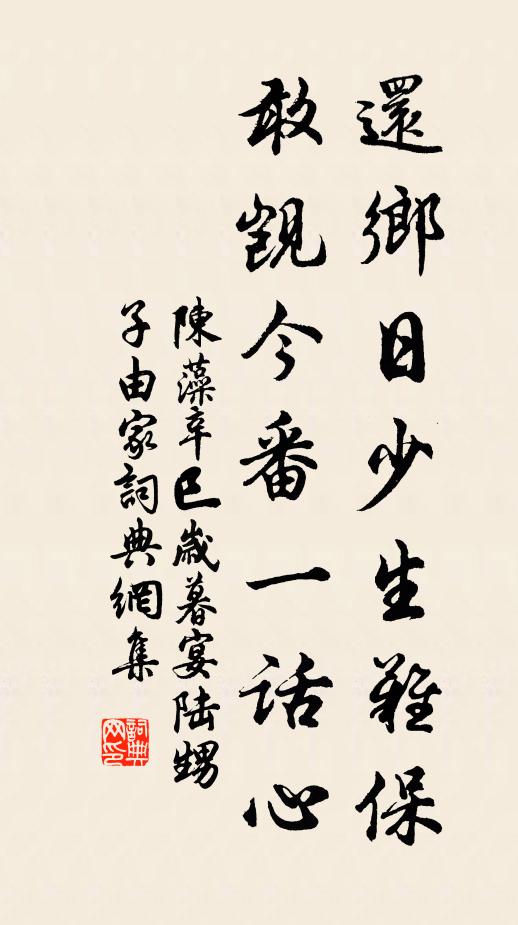 還鄉日少生難保
敢觊今番一话心
陳藻辛巳歲暮宴陆甥
子由家詞典網集
詞典网印